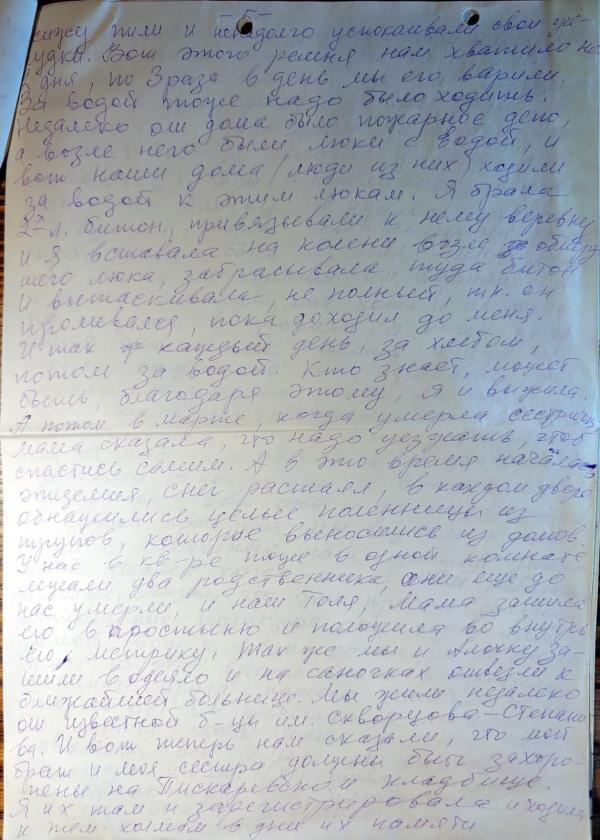 -5-
жижу пили и ненадолго успокаивали свои же-
лудки. Вот этого ремня нам хватило на
дня, по 3 раза в день мы его варили.
За водой тоже надо было ходить.
Недалеко от дома было пожарное депо,
а возле него были люки с водой, и
вот наши дома (люди из них) ходили
за водой к этим люкам. Я брала
2х л. битон, привязывали к нему веревку
и я вставала на колени возле обледе
шего люка, забрасывала туда битон
и вытаскивала, не полный, т.к. он
проливался, пока доходил до меня.
И так каждый день, за хлебом,
потом за водой. Кто знает, может
быть, благодаря этому, я и выжила.
А потом в марте, когда умерла сестричка
мама сказала, что надо уезжать, чтоб
спастись самим. А в это время началась
эпидемия, снег растаял, в каждом дворе
обнажились целые поленницы из
трупов, которые выносились из домов.
У нас в кв-ре тоже в одной комнате
лежали два родственника, они еще до
нас умерли, и наш Толя, Мама зашила
его в простыню и положила во внутрь
его метрику. Так же мы и Аллочку за-
шили в одеяло и на саночках отвезли к
ближайшей больнице. Мы жили недалеко
от известной б-цы им. Скворцова-Степано-
ва. И вот теперь нам сказали, что мой
брат и моя сестра должны быть захоро-
нены на Пискаревском кладбище.
Я их там и зарегистрировала и ходила
к тем холмам в дни их памяти